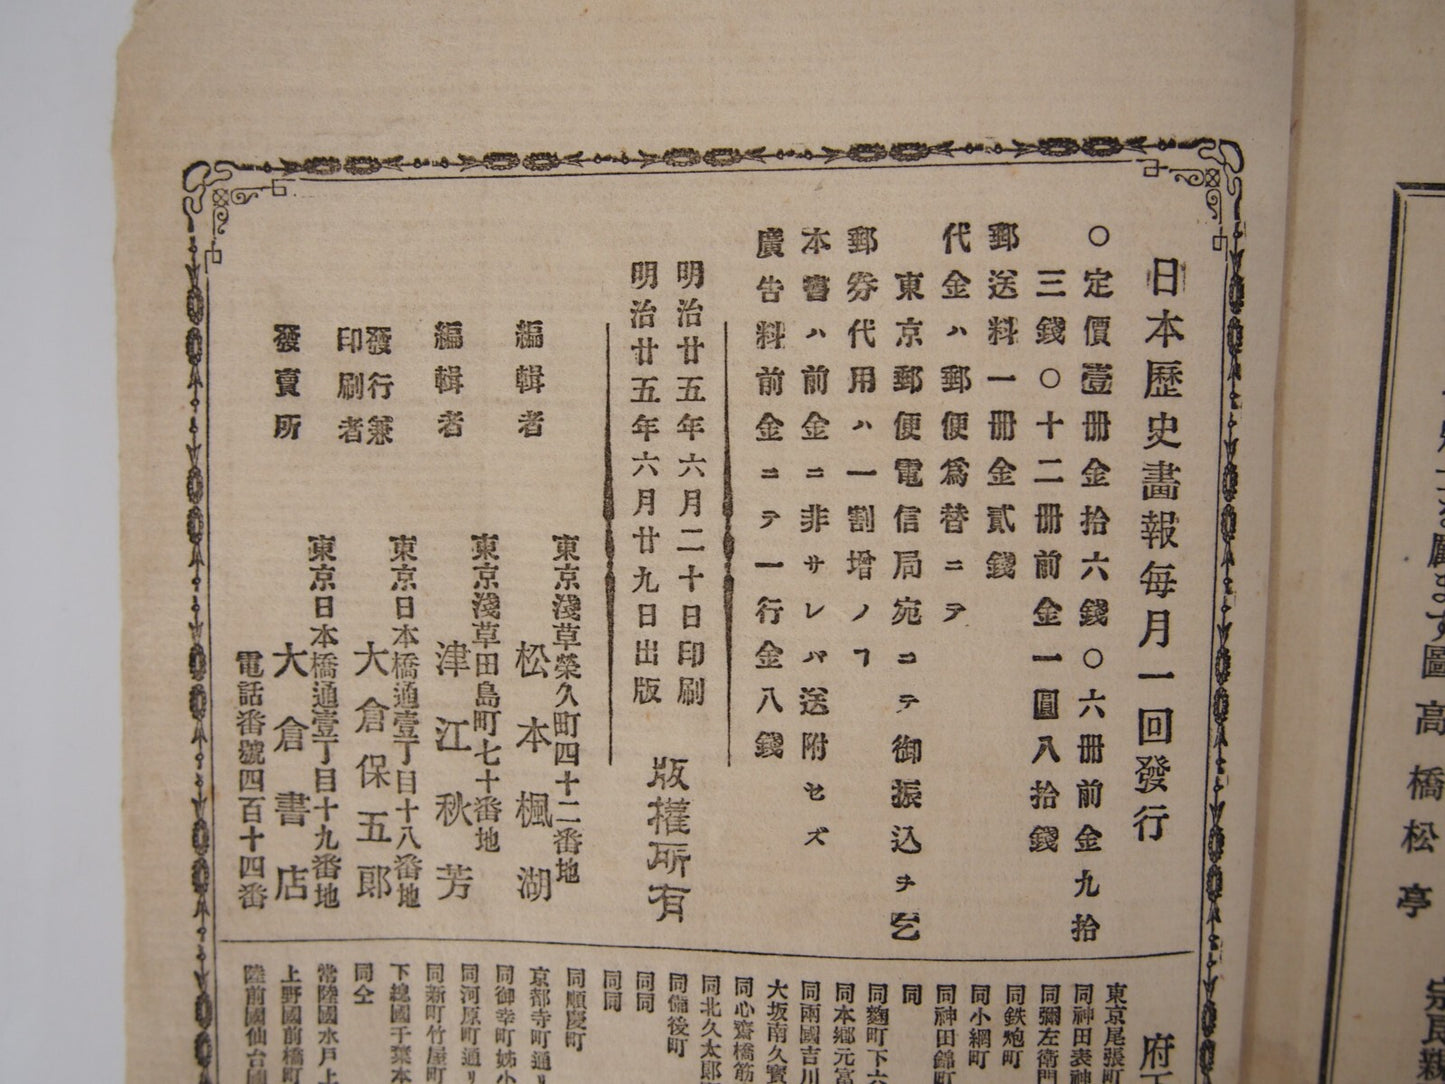 日本歷史畵報毎月一回發行
○定價壹册金拾六錢○六册前金九拾
三錢○十二册前金一圓八拾錢
郵送料一册金貳錢
代金ハ郵便爲替ニテ
東京郵便電信局宛コテ御振込ヲ乞
郵券代用ハ一割增ノフ
本書ハ前金ニ非サレバ送附セズ
廣告料前金ニテ一行金八錢
明治廿五年六月二十日印刷
明治廿五年六月廿九日出版
版權所有
東京淺草榮久町四十二番地
編輯者 松本楓湖
東京淺草田島町七十番地
編輯者 津江秋芳
東京日本橋通壹丁目十八番地
發行兼
印刷者 大倉保五郎
東京日本橋通壹丁目十九番地
發賣所 大倉書店
電話番號四百十四番
東京尾張町
同神田表神
同彌左衛門
同鉄炮町
同小網町
同神田錦町
同
同麴町下六
同本郷元富
同兩國吉川
大坂南久寶
同心齋橋筋
同北久太郎
同備後町
同同
同同
同順慶町
京都寺町通リ
同御幸町姉小
同河原町通リ
同新町竹屋町
下總國千葉本
同仝
常陸國水戸上
上野國前橋町
陸前國仙台國
高橋松亭
宗良親